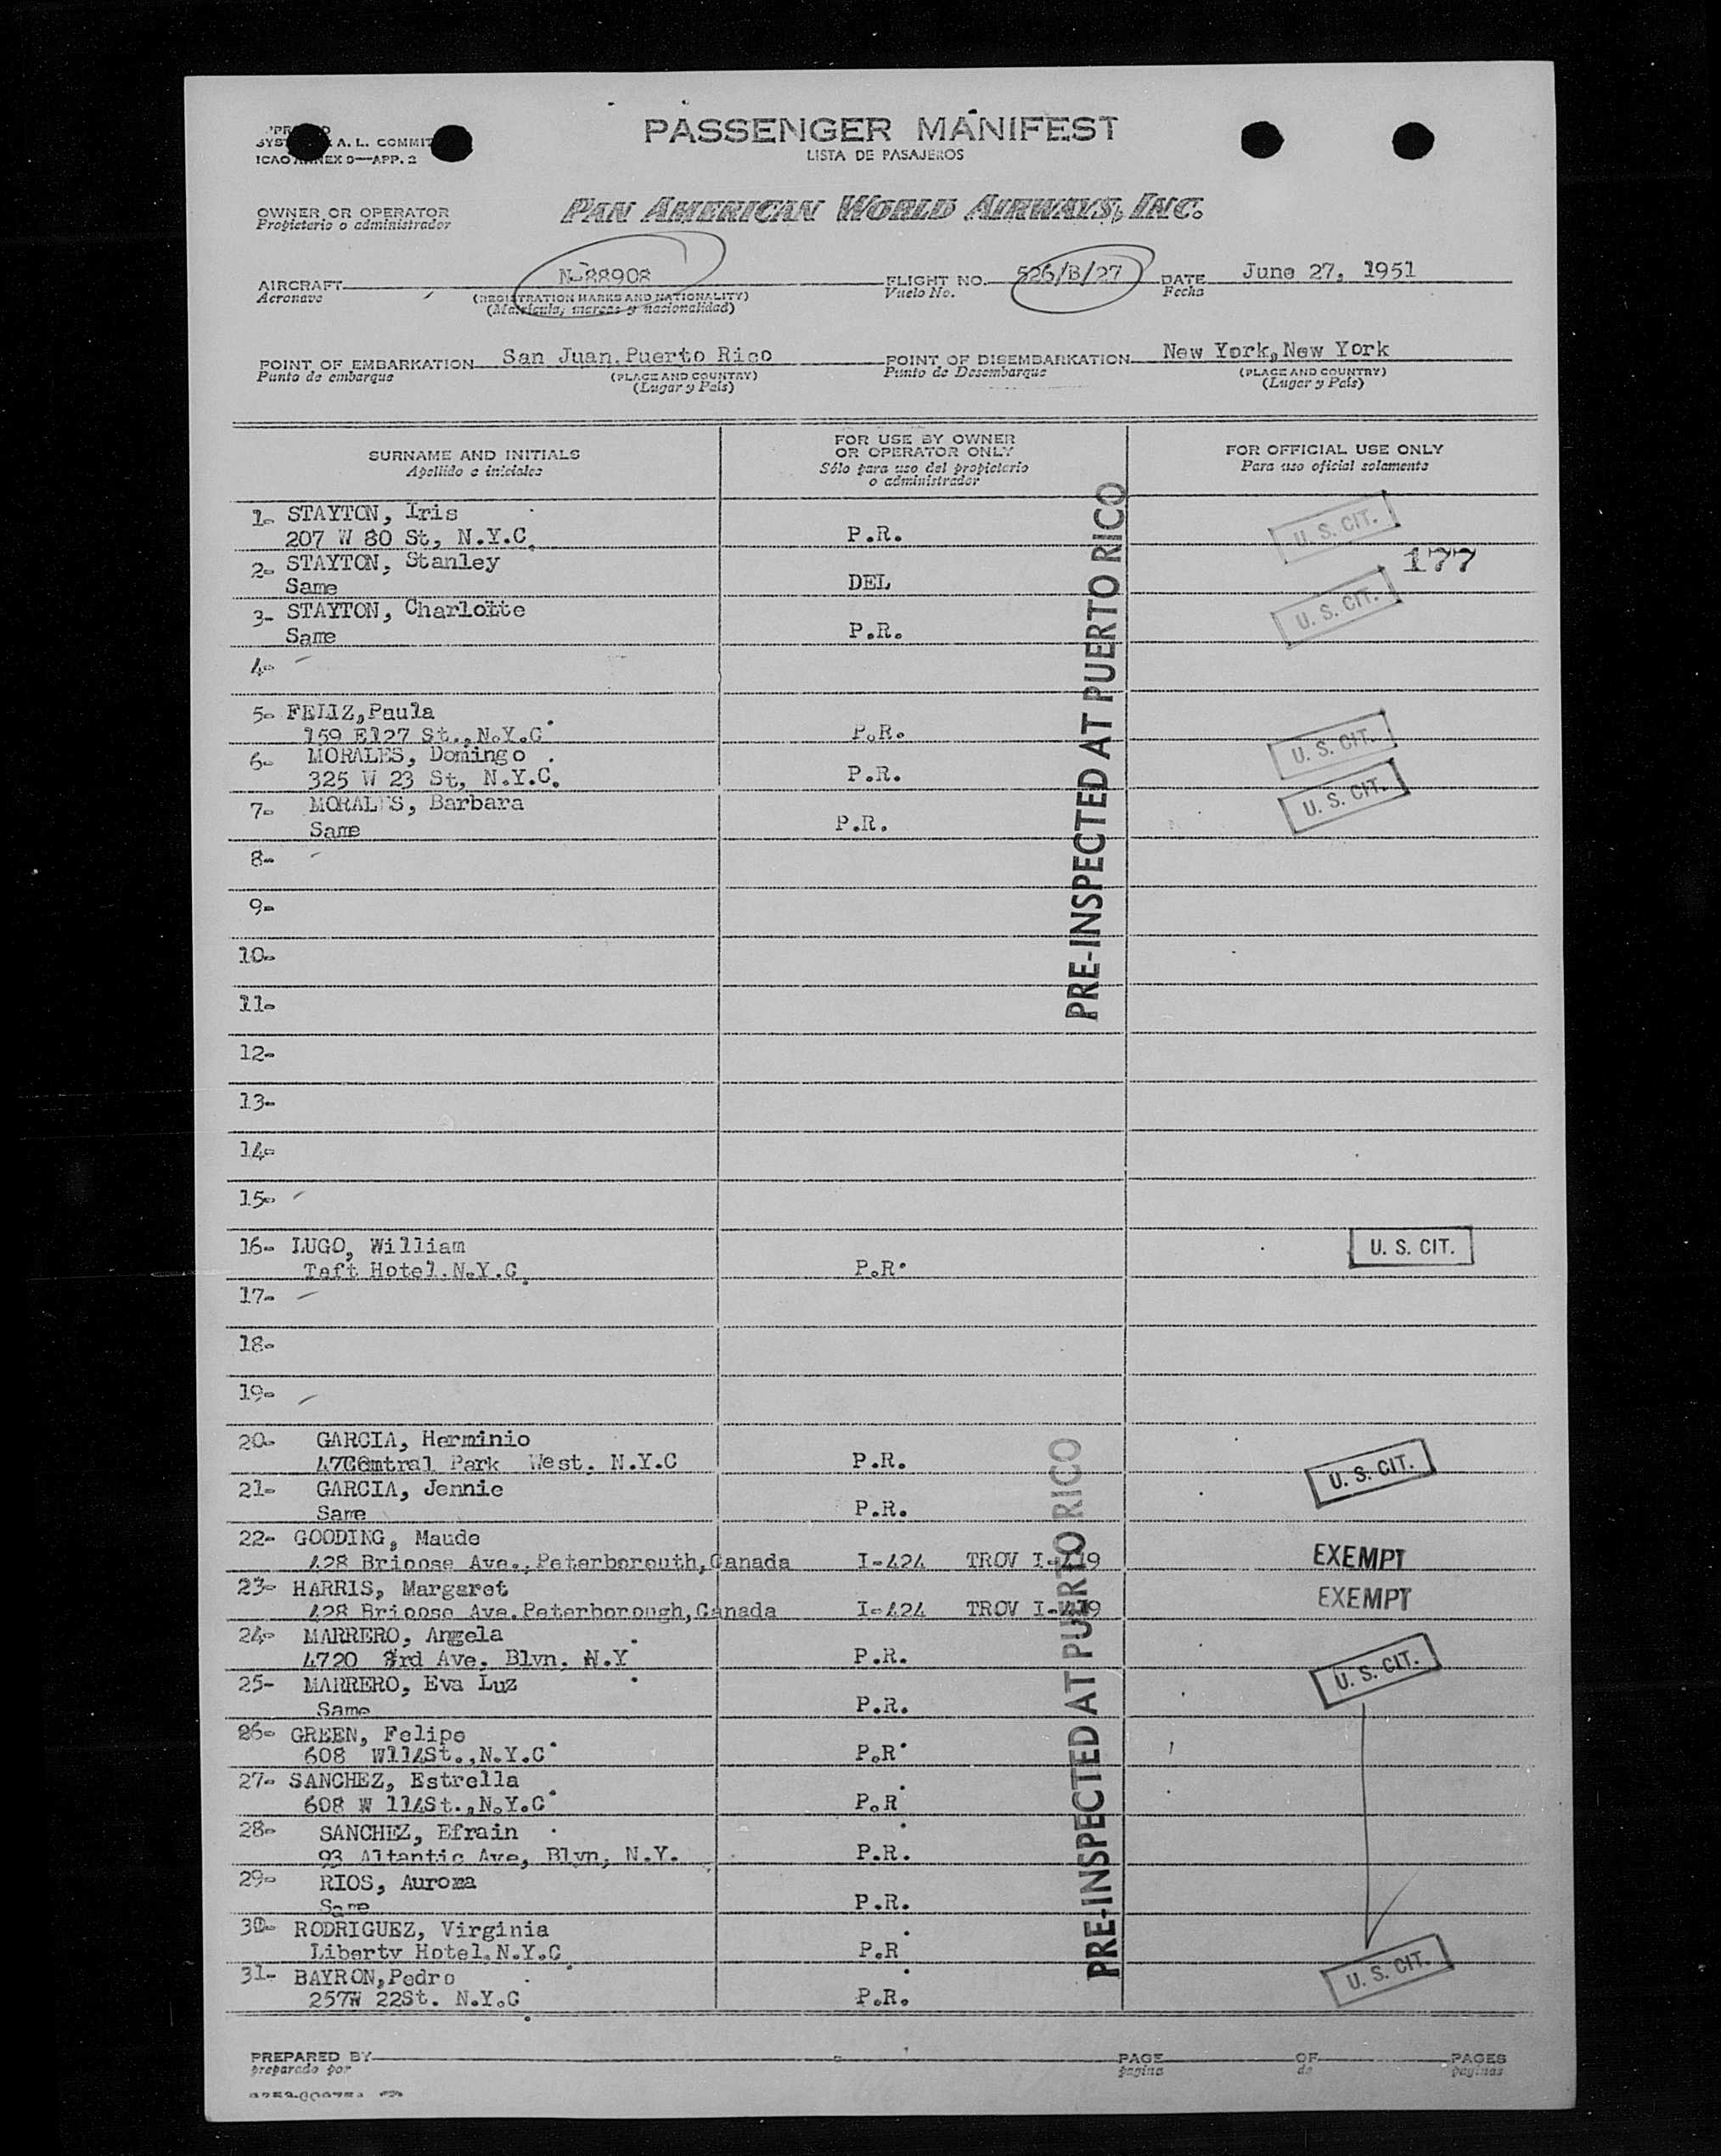 A. L. COMMIT
ICAO ANNEX 9—APP. 2
PASSENGER MANIFEST
LISTA DE PASAJEROS
OWNER OR OPERATOR
Propietario o administrador
PAN AMERICAN WORLD AIRWAYS, INC.
AIRCRAFT N-88908 FLIGHT NO. 526/B/27 DATE June 27, 1951
Aeronave (REGISTRATION MARKS AND NATIONALITY) Vuelo No. Fecha
(Matrícula, marcas y nacionalidad)
POINT OF EMBARKATION San Juan, Puerto Rico POINT OF DISEMBARKATION New York, New York
Punto de embarque (PLACE AND COUNTRY) Punto de Desembarque (PLACE AND COUNTRY)
(Lugar y País) (Lugar y País)
SURNAME AND INITIALS
Apellido e iniciales
FOR USE BY OWNER
OR OPERATOR ONLY
Sólo para uso del propietario
o administrador
FOR OFFICIAL USE ONLY
Para uso oficial solamente
1- STAYTON, Iris
207 W 80 St, N.Y.C. P.R. U. S. CIT.
2- STAYTON, Stanley 177
Same DEL
3- STAYTON, Charlotte U. S. CIT.
Same P.R.
4-
5- FELIZ,Paula
159 E127 St., N.Y.C P.R. U. S. CIT.
6- MORALES, Domingo
325 W 23 St, N.Y.C. P.R.
7- MORALES, Barbara U. S. CIT.
Same P.R.
8-
9-
10-
11-
12-
13-
14-
15-
16- LUGO, William U. S. CIT.
Taft Hotel. N.Y.C. P.R.
17-
18-
19-
20- GARCIA, Herminio
47Central Park West. N.Y.C P.R. U. S. CIT.
21- GARCIA, Jennie
Same P.R.
22- GOODING, Maude
428 Briose Ave., Peterborouth, Canada I-424 TROV I-419 EXEMPT
23- HARRIS, Margaret EXEMPT
428 Briose Ave. Peterborough, Canada I-424 TROV I-419
24- MARRERO, Angela
4720 3rd Ave. Blyn. N.Y. P.R. U. S. CIT.
25- MARRERO, Eva Luz
Same P.R.
26- GREEN, Felipe
608 W114St., N.Y.C P.R
27- SANCHEZ, Estrella
608 W 114St., N.Y.C P.R
28- SANCHEZ, Efrain
93 Altantic Ave, Blyn, N.Y. P.R.
29- RIOS, Aurora
Same P.R.
30- RODRIGUEZ, Virginia
Liberty Hotel, N.Y.C. P.R
31- BAYRON,Pedro U. S. CIT.
257W 22St. N.Y.C P.R.
PRE-INSPECTED AT PUERTO RICO
PRE-INSPECTED AT PUERTO RICO
PREPARED BY PAGE OF PAGES
preparado por página de páginas